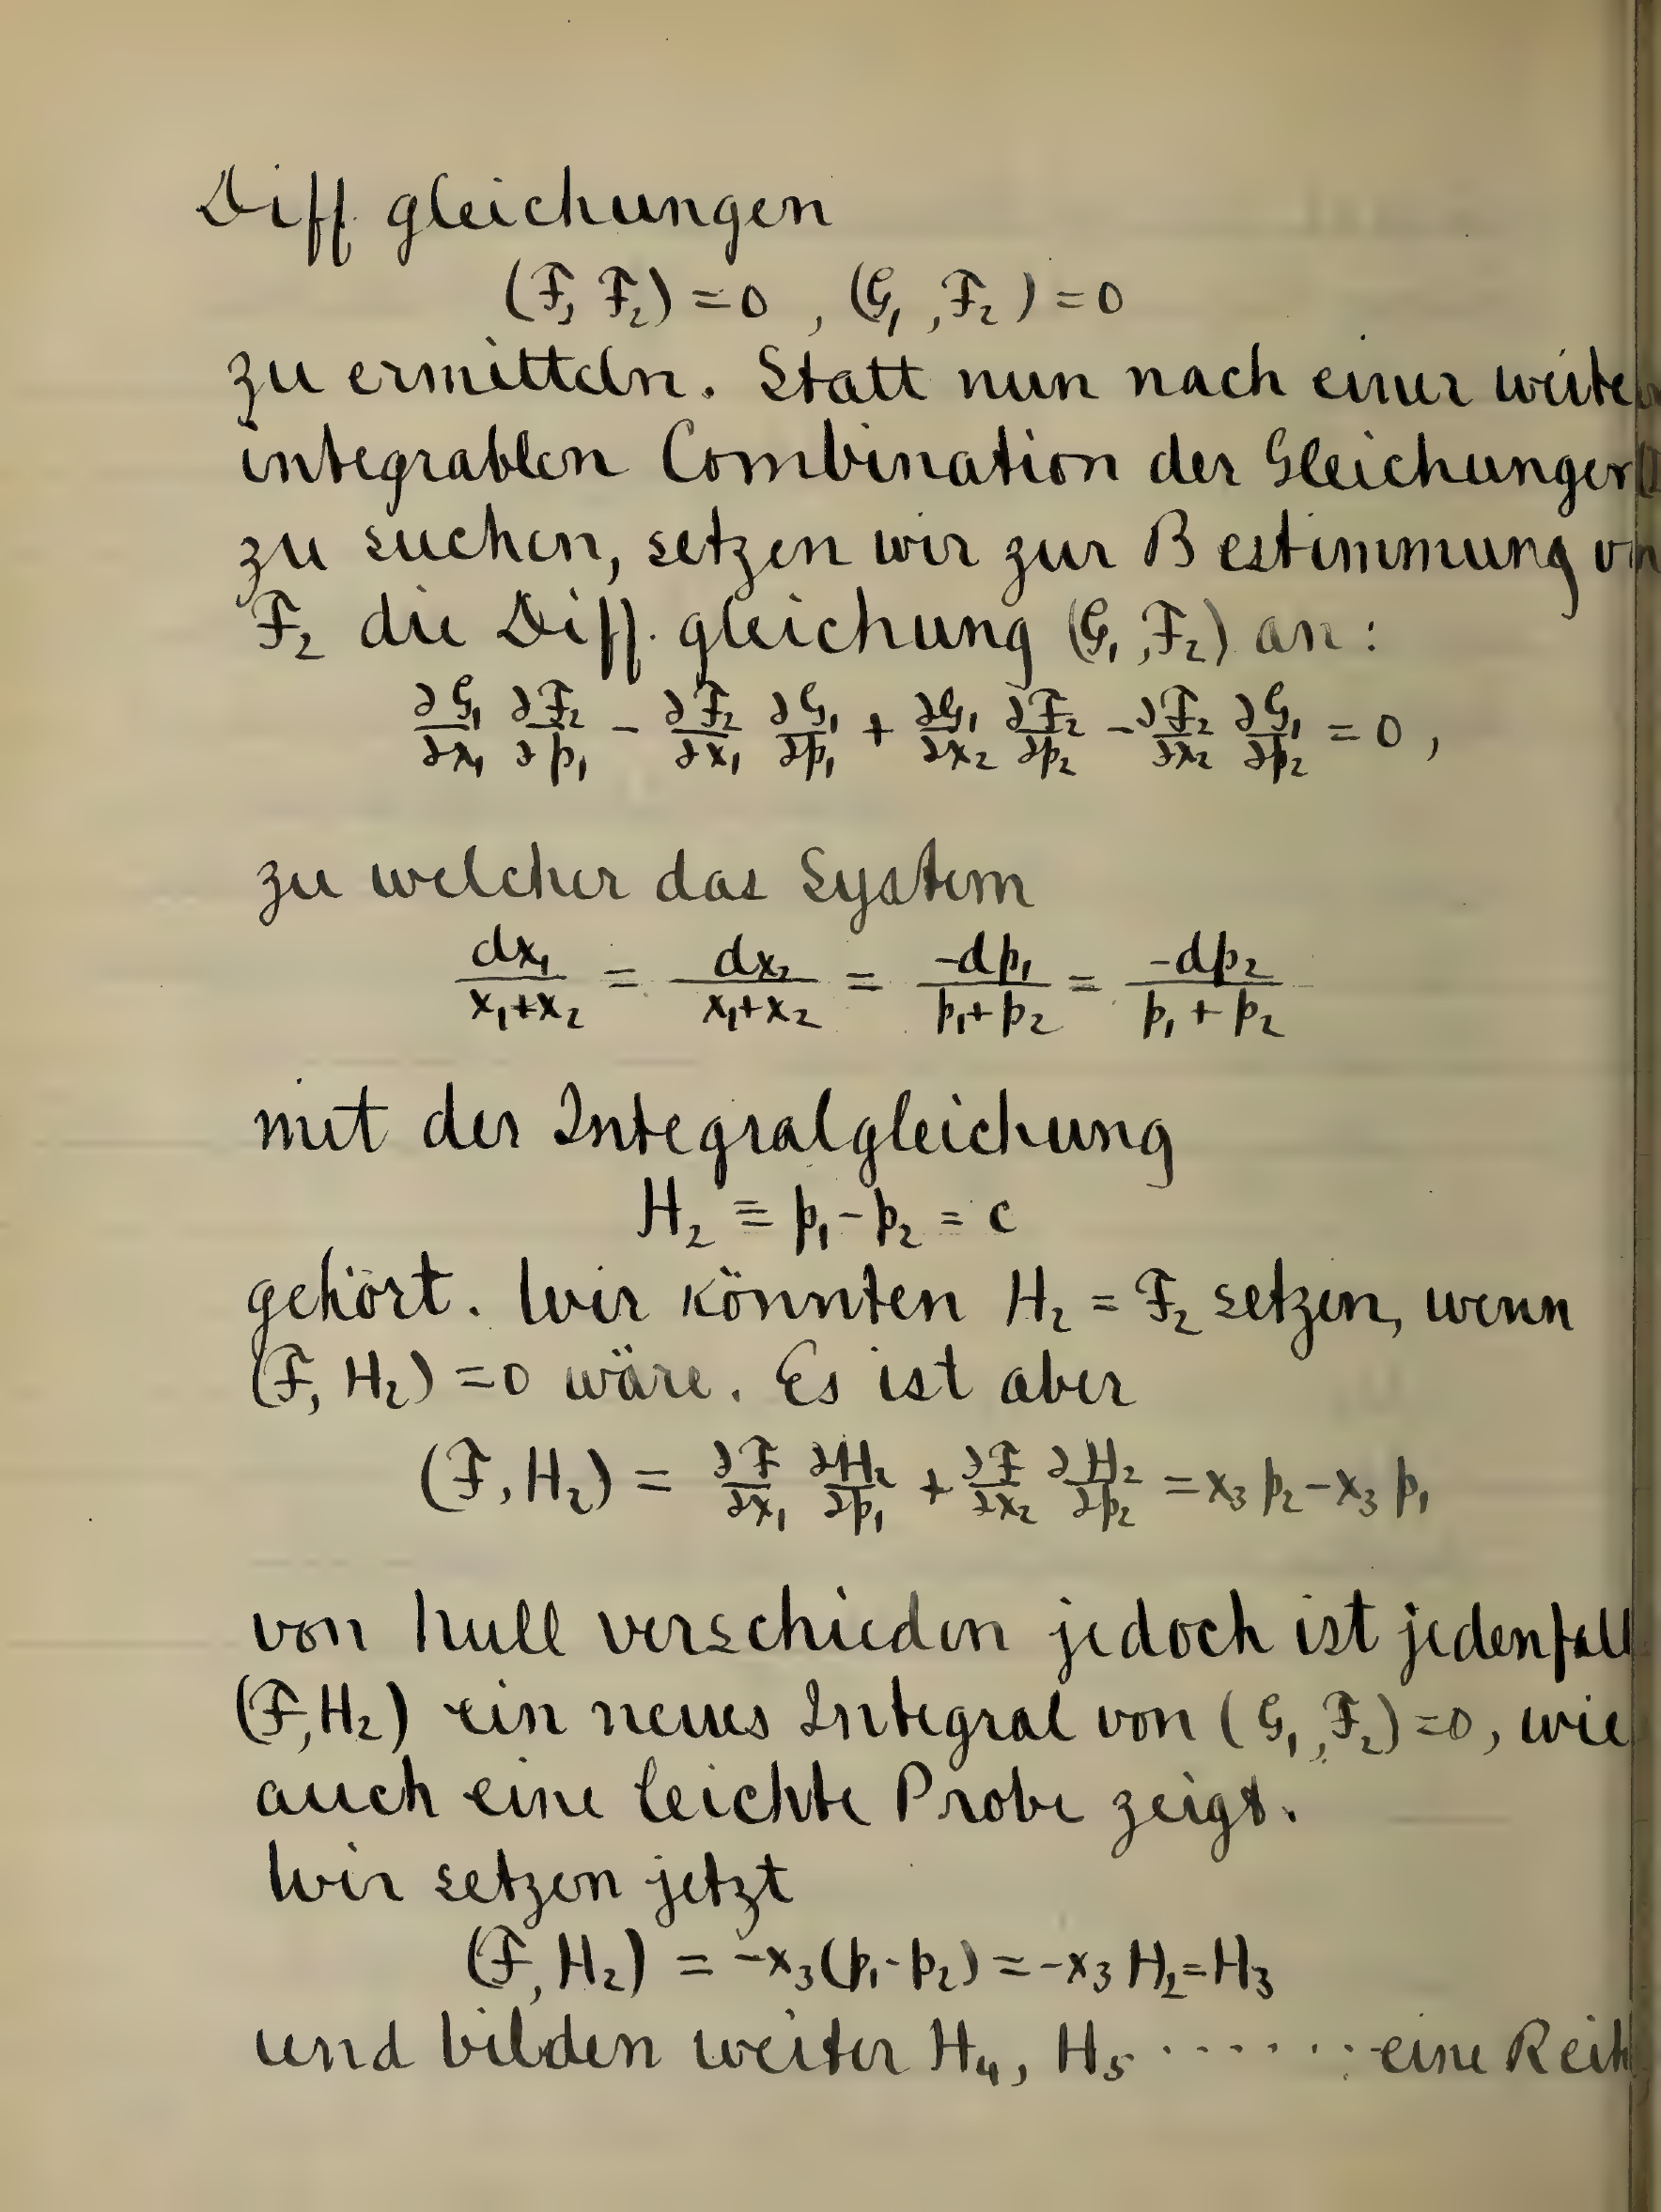 Diff. gleichungen
(F, F₂) = 0 , (G₁ , F₂ ) = 0
zu ermitteln. Statt nun nach einer
integrablen Combination der Gleichungen
zu suchen, setzen wir zur Bestimmung
F₂ die Diff. gleichung (G₁ , F₂) an :
∂G₁/∂x₁ ∂F₂/∂p₁ - ∂F₂/∂x₁ ∂G₁/∂p₁ + ∂G₁/∂x₂ ∂F₂/∂p₂ - ∂F₂/∂x₂ ∂G₁/∂p₂ = 0 ,
zu welcher das System
dx₁/x₁+x₂ = dx₂/x₁+x₂ = -dp₁/p₁+p₂ = -dp₂/p₁+p₂
mit der Integralgleichung
H₂ ≡ p₁ - p₂ = c
gehört. Wir könnten H₂ = F₂ setzen, wenn
(F, H₂) = 0 wäre. Es ist aber
(F, H₂) = ∂F/∂x₁ ∂H₂/∂p₁ + ∂F/∂x₂ ∂H₂/∂p₂ = x₃ p₂ - x₃ p₁
von Null verschieden jedoch ist jedenfall
(F, H₂) ein neues Integral von (G₁ , F₂) = 0, wie
auch eine leichte Probe zeigt.
Wir setzen jetzt
(F, H₂) = -x₃(p₁-p₂) = -x₃ H₂ = H₃
und bilden weiter H₄, H₅ ······· eine Reih